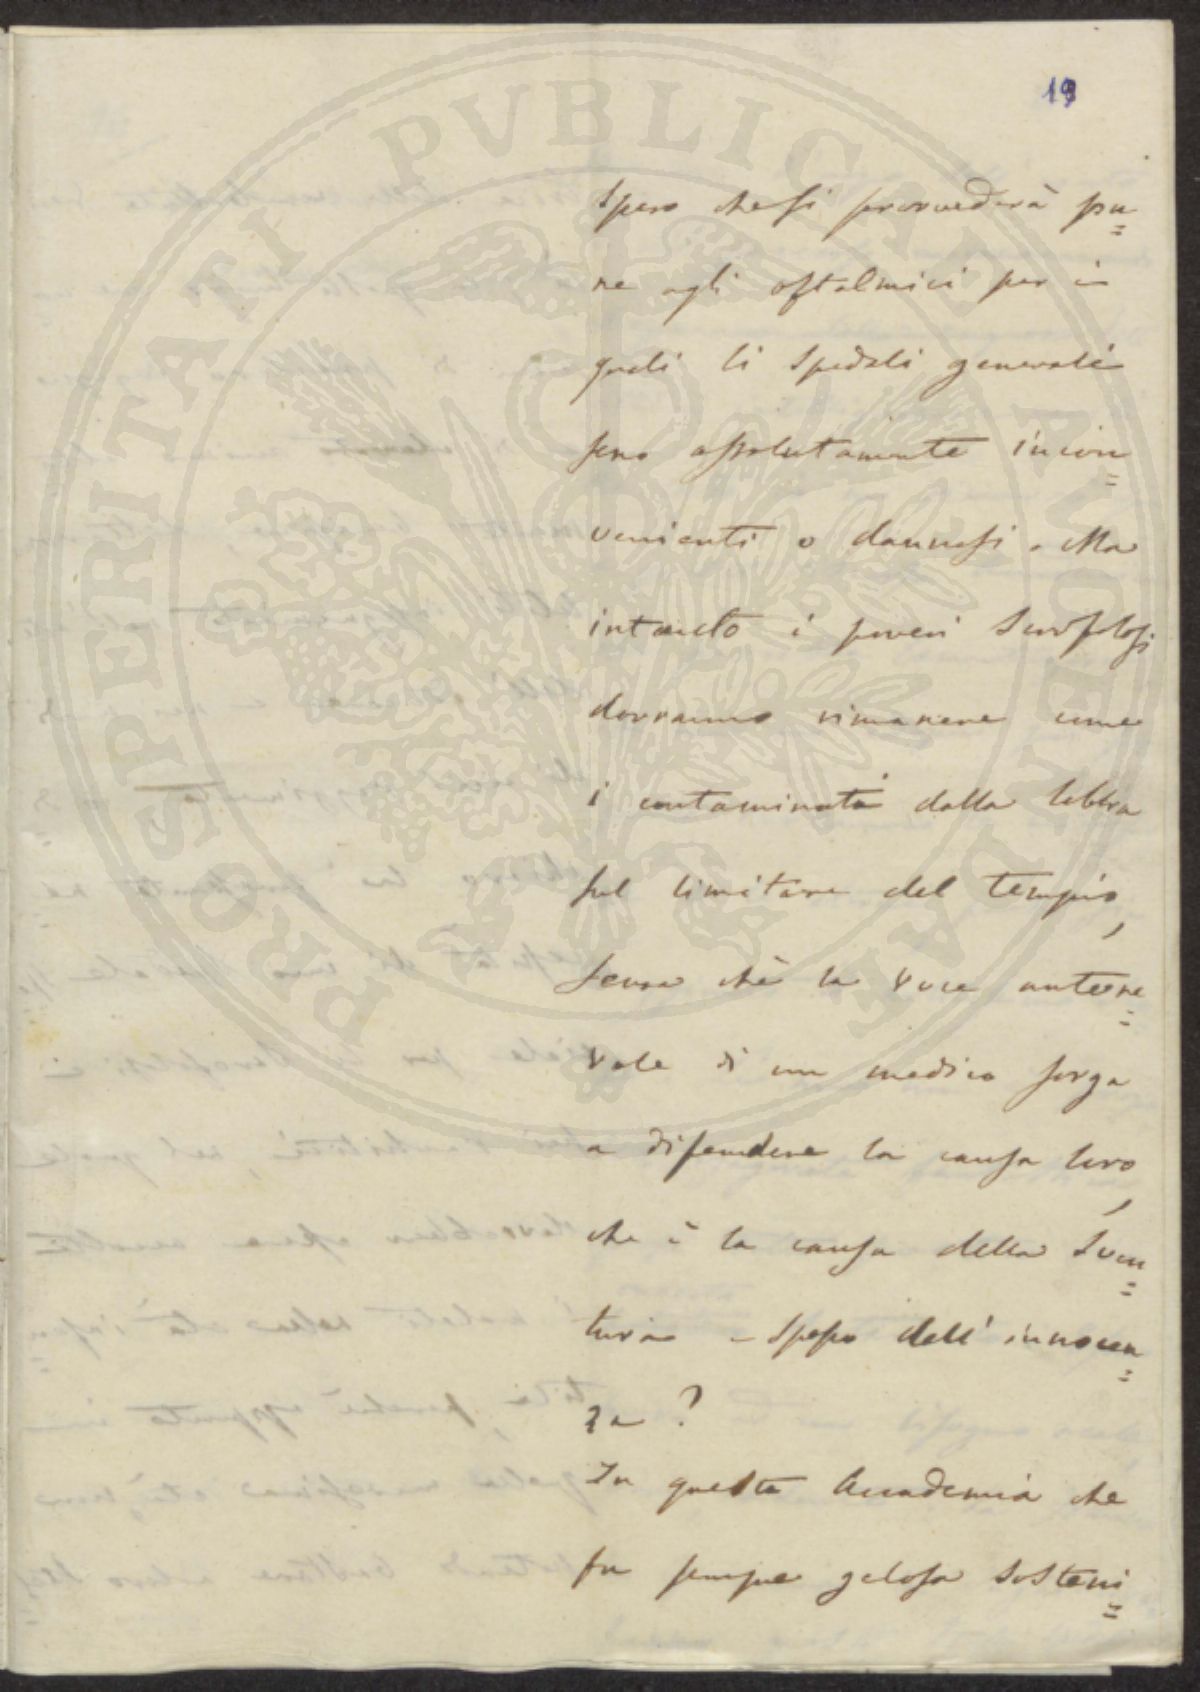 19
Spero che si provvederà pu=
re agli oftalmici per i
quali li Spedali generali
sono assolutamente incon=
venienti o dannosi. Ma
intanto i poveri Scrofolosi
dovranno rimanere come
i contaminati dalla lebbra
sul limitare del tempio,
senza chè la voce autore=
vole di un medico sorga
a difendere la causa loro,
che è la causa della Sven=
tura e spesso dell' innocen=
za?
In questa Accademia che
fu sempre gelosa sosteni=
AVGENDAE PVBLICAE PROSPERITATI